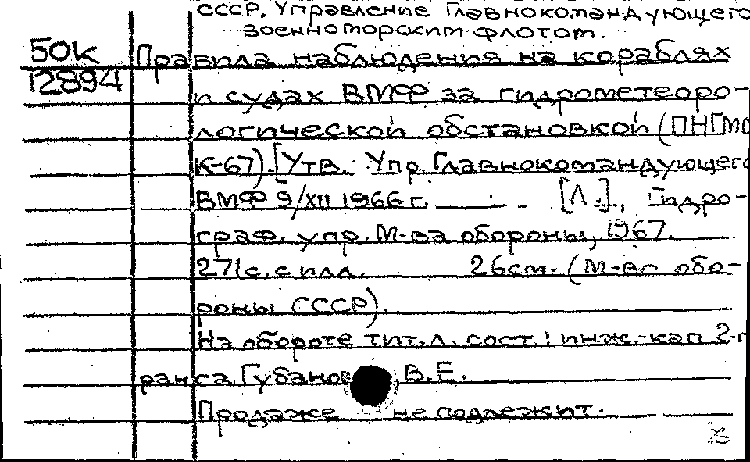 СССР. Управление Главнокомандующего
военноморским флотом.
50к
12894
Правила наблюдения на кораблях
и судах ВМФ за гидрометеоро-
логической обстановкой (ПНГМО
К-67). [Утв. Упр. Главнокомандующего
ВМФ 9/XII 1966 г. ——— . [Л.], Гидро-
граф. упр. М-ва обороны, 1967.
271 с. с илл. 26 см. (М-во обо-
роны СССР).
На обороте тит. л. сост.: инж.-кап. 2-г
ранга Губанов В.Е.
Продаже не подлежит.